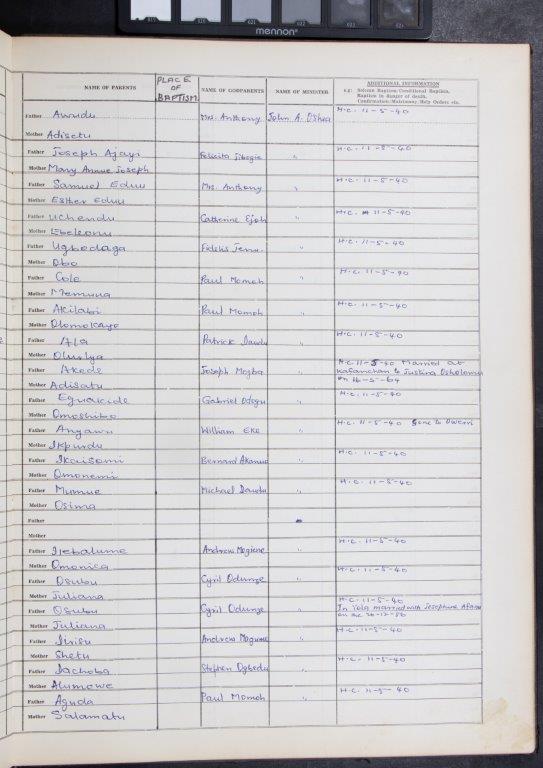 mennon
NAME OF PARENTS
PLACE OF BAPTISM
NAME OF GODPARENTS
NAME OF MINISTER
ADDITIONAL INFORMATION
e.g: Solemn Baptism/Conditional Baptism,
Baptism in danger of death,
Confirmation/Matrimony/Holy Orders etc.
Father Awudu Mrs. Anthony John A. O'Shea H.C. 11-5-40
Mother Adisetu
Father Joseph Ajayi Felicita H.C. 11-5-40
Mother Mary Joseph
Father Samuel Eduu Mrs. Anthony " H.C. 11-5-40
Mother Esther Eduu
Father Uchendu Catherine Ejoh " H.C. 11-5-40
Mother
Father Ugbodaga Fidelis " H.C. 11-5-40
Mother Obo
Father Cole Paul Momoh " H.C. 11-5-40
Mother Memuna
Father Akilabi Paul Momoh " H.C. 11-5-40
Mother Olomokaye
Father Patrick Dawdu " H.C. 11-5-40
Mother
Father Akede Joseph Mogba " H.C. 11-5-40 Married at
Kafanchan to Justina
Mother Adisatu on 16-5-64
Father Gabriel Odogu " H.C. 11-5-40
Mother Omoshibo
Father Anyawu William Eke " H.C. 11-5-40 Gone to Owerri
Mother Ikpurdu
Father Bernard " H.C. 11-5-40
Mother Omonemi
Father Mumue Michael Dawdu " H.C. 11-5-40
Mother Osima
Father
Mother
Father Ijebalume Andrew " H.C. 11-5-40
Mother Omonica
Father Osubu Cyril Odunze " H.C. 11-5-40
Mother Juliana
Father Osubu Cyril Odunze " H.C. 11-5-40
In Yola married with Josephine
Mother Juliana on 26-12-56
Father Jirisu Andrew " H.C. 11-5-40
Mother Shetu
Father Jachoba Stephen Ogbedu " H.C. 11-5-40
Mother Alumowe
Father Aguda Paul Momoh " H.C. 11-5-40
Mother Salamatu